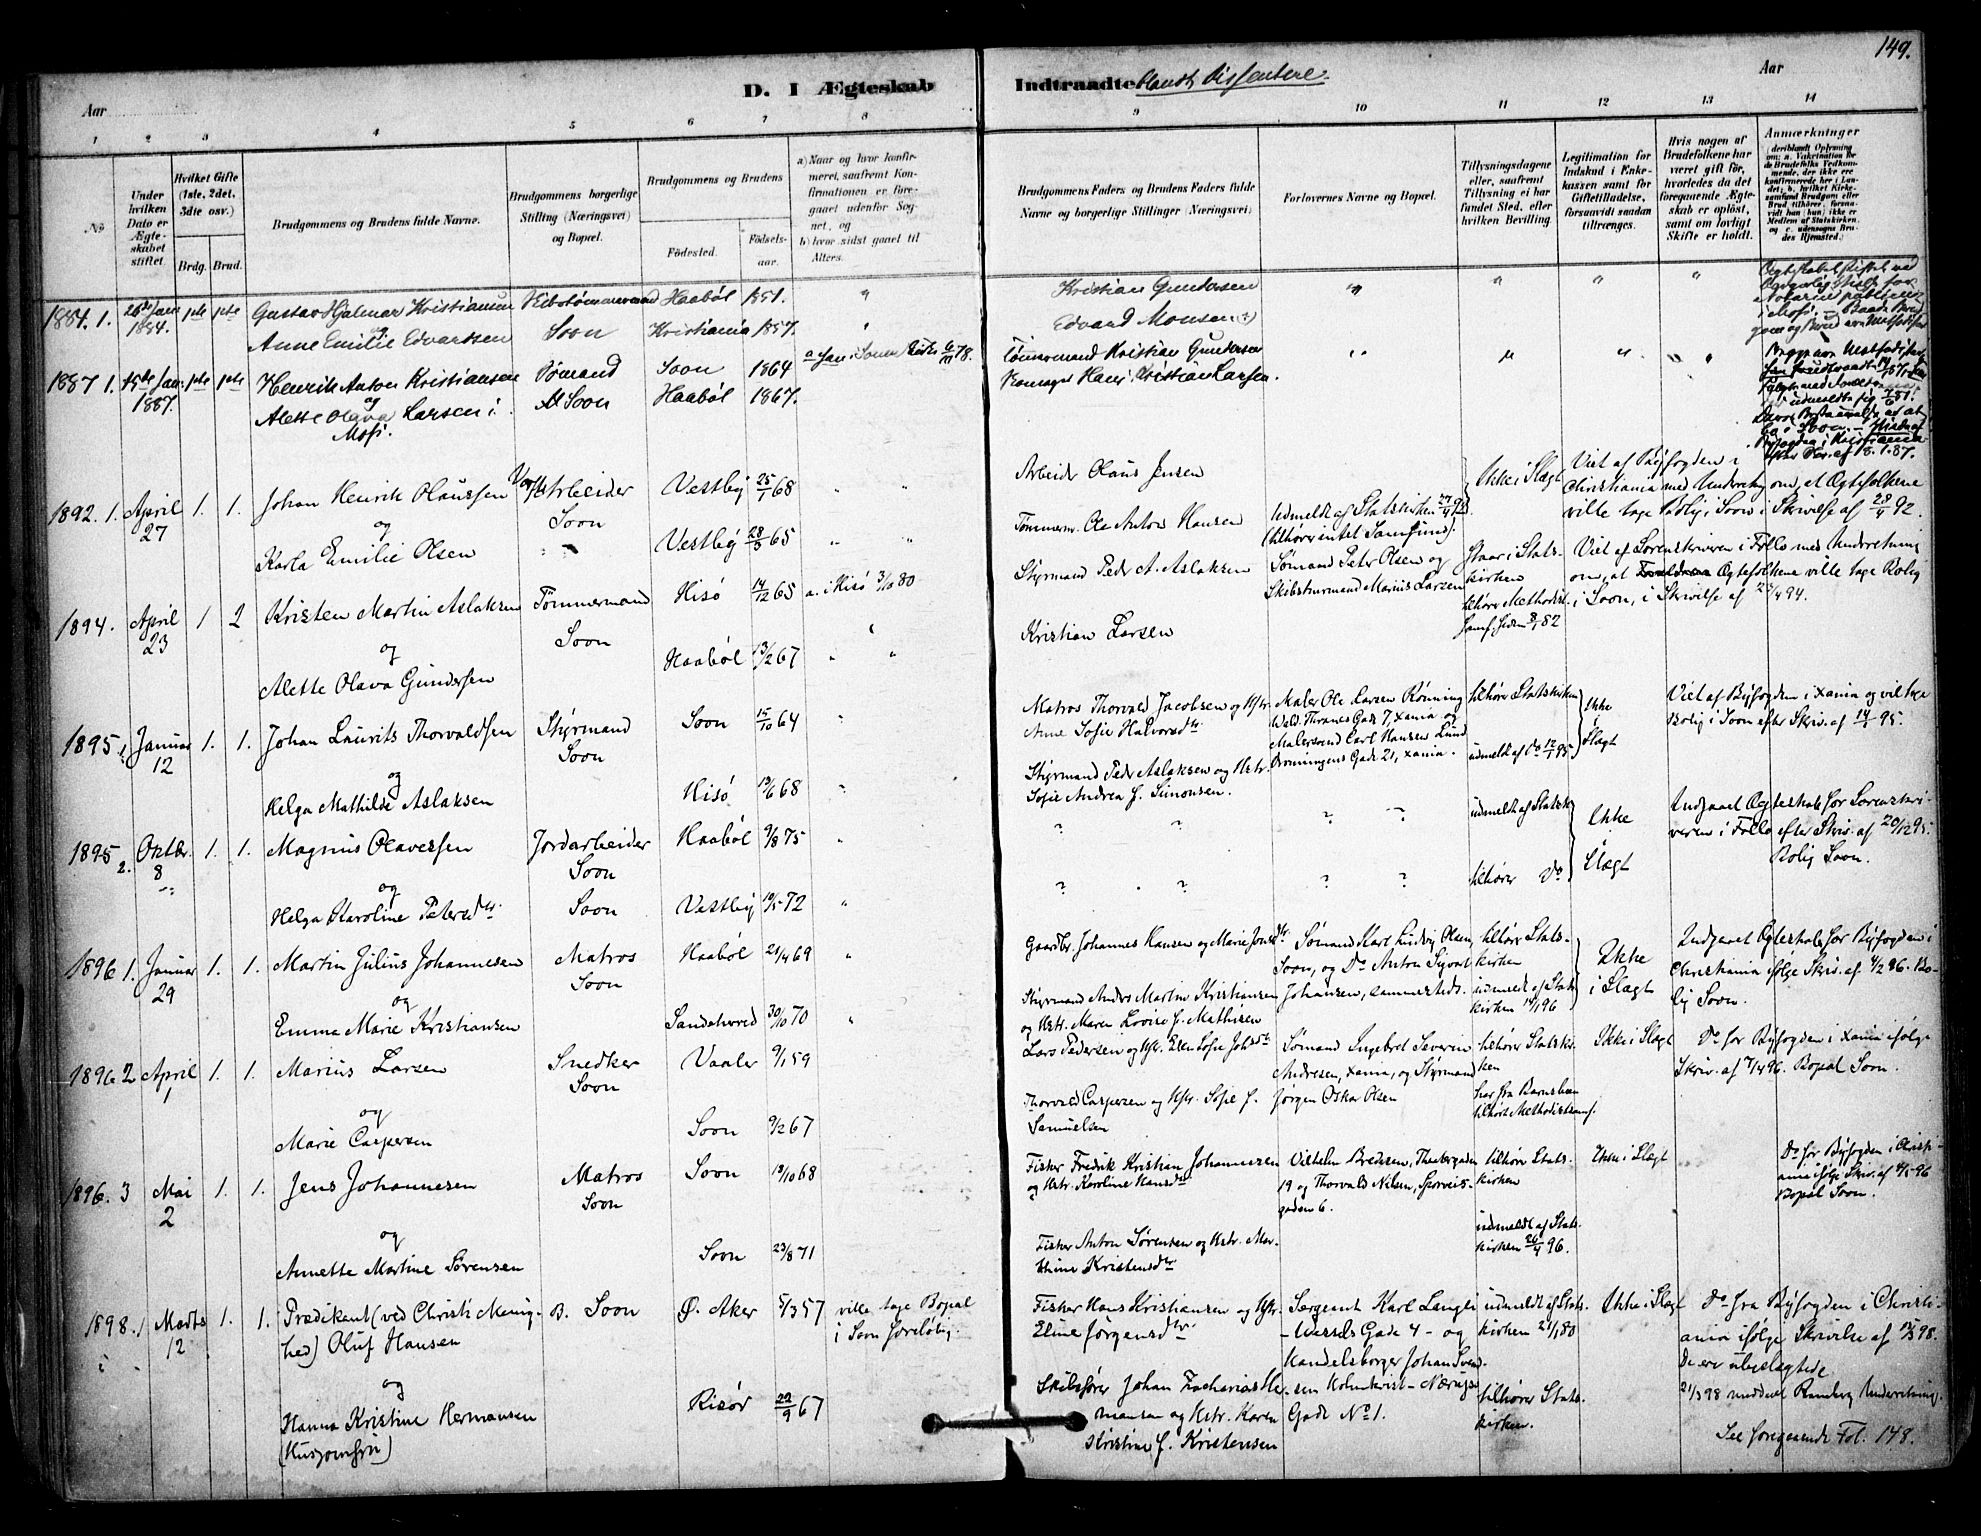 149.
D. I Ægteskab Indtraadte blandt Dissentere.
Aar
Aar
1 2 3 4 5 6 7 8 9 10 11 12 13 14
No
Under hvilken Dato er Ægteskabet stiftet.
Hvilket Gifte (1ste, 2det, 3die osv.)
Brdg. Brud.
Brudgommens og Brudens fulde Navne.
Brudgommens borgerlige Stilling (Næringsvei) og Bopæl.
Brudgommens og Brudens
Fødested.
Fødselsaar.
a) Naar og hvor konfirmeret, saafremt Konfirmationen er foregaaet udenfor Sognet, og
b) hvor sidst gaaet til Alters.
Brudgommens Faders og Brudens Faders fulde Navne og borgerlige Stillinger (Næringsvei)
Forlovernes Navne og Bopæl.
Tillysningsdagene eller, saafremt Tillysning ei har fundet Sted, efter hvilken Bevilling.
Legitimation for Indskud i Enkekassen samt for Giftetilladelse, forsaavidt saadan tiltrænges.
Hvis nogen af Brudefolkene har været gift før, hvorledes da det foregaaende Ægteskab er opløst, samt om lovligt Skifte er holdt.
Anmærkninger
1884. 1. 26de Jan. 1884. 1ste 1ste
Gustav Hjalmar Kristiansen
og
Anne Emilie Edvardsen
Soon
Haabøl 1851.
Kristiania 1857.
Kristian Gundersen
Edvard Monsen (+)
1887 1. 15de Jan. 1887. 1ste 1ste
Henrik Anton Kristiansen
og
Alette Olava Larsen i Moss.
Sømand
Soon
Soon 1864
Haabøl 1867.
Tømmermand Kristian Gundersen
Hans Kristian Larsen.
1892. 1. April 27 1. 1.
Johan Henrik Olaussen
og
Karla Emilie Olsen
Arbeider
Soon
Vestby 25/1 68
Vestby 28/3 65
Arbeider Olaus Jensen
Tømmerm. Ole Anton Hansen
Udmeldt af Statskirken 27/4 92
(tilhører intet Samfund).
Ikke i Slægt
Viet af Byfogden i
Christiania med Underretn. om, at Ægtefolkene
ville tage Bolig i Soon i Skrivelse af 28/4 92.
1894. April 23 1 2
Kristen Martin Aslaksen
og
Alette Olava Gundersen
Tømmermand
Soon
Hisø 14/12 65
a. i Hisø 3/10 80
Haabøl 13/2 67
Styrmand Peder A. Aslaksen
Kristian Larsen
Sømand Peter Olsen og
Skibstømmermand Marius Larsen
Staar i Statskirken
tilhører Methodist.
Samf. siden 8/1 82
Viet af Sorenskriveren i Follo med Underretning
om, at Ægtefolkene ville tage Bolig
i Soon, i Skrivelse af 25/4 94.
1895 1. Januar 12 1. 1.
Johan Laurits Thorvaldsen
og
Helga Mathilde Aslaksen
Styrmand
Soon
Soon 15/10 64
Hisø 19/6 68
Matros Thorvald Jacobsen og Hstr.
Anne Sofie Halvorsdtr.
Styrmand Peder Aslaksen og Hstr.
Sofie Andrea f. Simonsen.
Maler Ole Larsen Rønning
Wald. Thranes Gade 7, Xania og
Malersvend Carl Hansen Lund
Dronningens Gade 21, Xania.
tilhører Statskirken
udmeldt af Do 12/1 95
Ikke i Slægt
Viet af Byfogden i Xania og vil tage
Bolig i Soon efter Skriv. af 14/1 95.
1895 2. Oktbr. 8 1. 1.
Magnus Olaversen
og
Helga Karoline Petersdtr.
Jordarbeider
Soon
Soon
Haabøl 9/8 75
Vestby 19/5 72
? ?
? ?
udmeldt af Statsk.
tilhører Do
Ikke i Slægt
Indgaaet Ægteskab for Sorenskriveren
i Follo efter Skriv. af 20/12 95.
Bolig Soon.
1896 1. Januar 29 1. 1.
Martin Julius Johannesen
og
Emma Marie Kristiansen
Matros
Soon
Haabøl 21/4 69
Sandeherred 30/10 70
Gaardbr. Johannes Hansen og Marie Jonsdtr.
Styrmand Anders Martin Kristiansen
og Hstr. Maren Lovise f. Mathisen
Sømand Karl Ludvig Olsen,
Soon, og Do Anton Sigvart
Johansen, sammesteds.
tilhører Statskirken
udmeldt af Statskirken 14/1 96
Ikke i Slægt
Indgaaet Ægteskab for Byfogden i
Christiania ifølge Skriv. af 4/2 96. Bolig
Soon.
1896 2 April 1 1. 1.
Marius Larsen
og
Marie Caspersen
Snedker
Soon
Vaaler 9/1 59
Soon 9/2 67
Lars Pedersen og Hstr. Ellen Sofie Johsdtr.
Thorvald Caspersen og Hstr. Sofie f.
Samuelsen
Sømand Ingebret Severin
Andresen, Xania, og Styrmand
Jørgen Oskar Olsen
tilhører Statskirken
har fra Barnsben
tilhørt Methodistsamf.
Ikke i Slægt
Do for Byfogden i Xania ifølge
Skriv. af 7/4 96. Bopæl Soon.
1896. 3 Mai 2 1. 1.
Jens Johannesen
og
Annette Martine Sørensen
Matros
Soon
Soon 19/10 68
Soon 23/8 71
Fisker Fredrik Kristian Johannesen
og Hstr. Karoline Hansdtr.
Fisker Anton Sørensen og Hstr. Mathine Kristensdtr.
Vilhelm Bredesen,
19 og Thorvald Nilsen, Sporveisgaden 6.
tilhører Statskirken
udmeldt af Statskirken 26/4 96.
Ikke i Slægt
Do for Byfogden i Christiania
ifølge Skriv. af 4/5 96
Bopæl Soon.
1898. 1 Marts 12 1. 1.
Prædikant (ved Christi Menighed)
Oluf Hansen
og
Hanna Kristine Hermansen
(Husjomfru)
B. Soon
Ø. Aker 5/3 57
Risør 22/9 67
ville tage Bopæl
i Soon foreløbig.
Fisker Hans Kristiansen og Hstr.
Eline Jørgensdtr.
Skibsfører Johan Zacharias Hermansen
og Hstr. Karen
Kristine f. Kristensen
Sargent Karl Langli
- Wessels Gade 4 - og
Handelsborger Johan Svendsen
Holmkvist - Nærups
Gade No 1.
udmeldt af Statskirken 21/1 80
tilhører Statskirken.
Ikke i Slægt
Do fra Byfogden i Christiania
ifølge Skrivelse af 12/3 98.
De ere ubeslægtede
21/3 98 meddelt Ramberg Underretning.
See foregaaende Fol. 148.